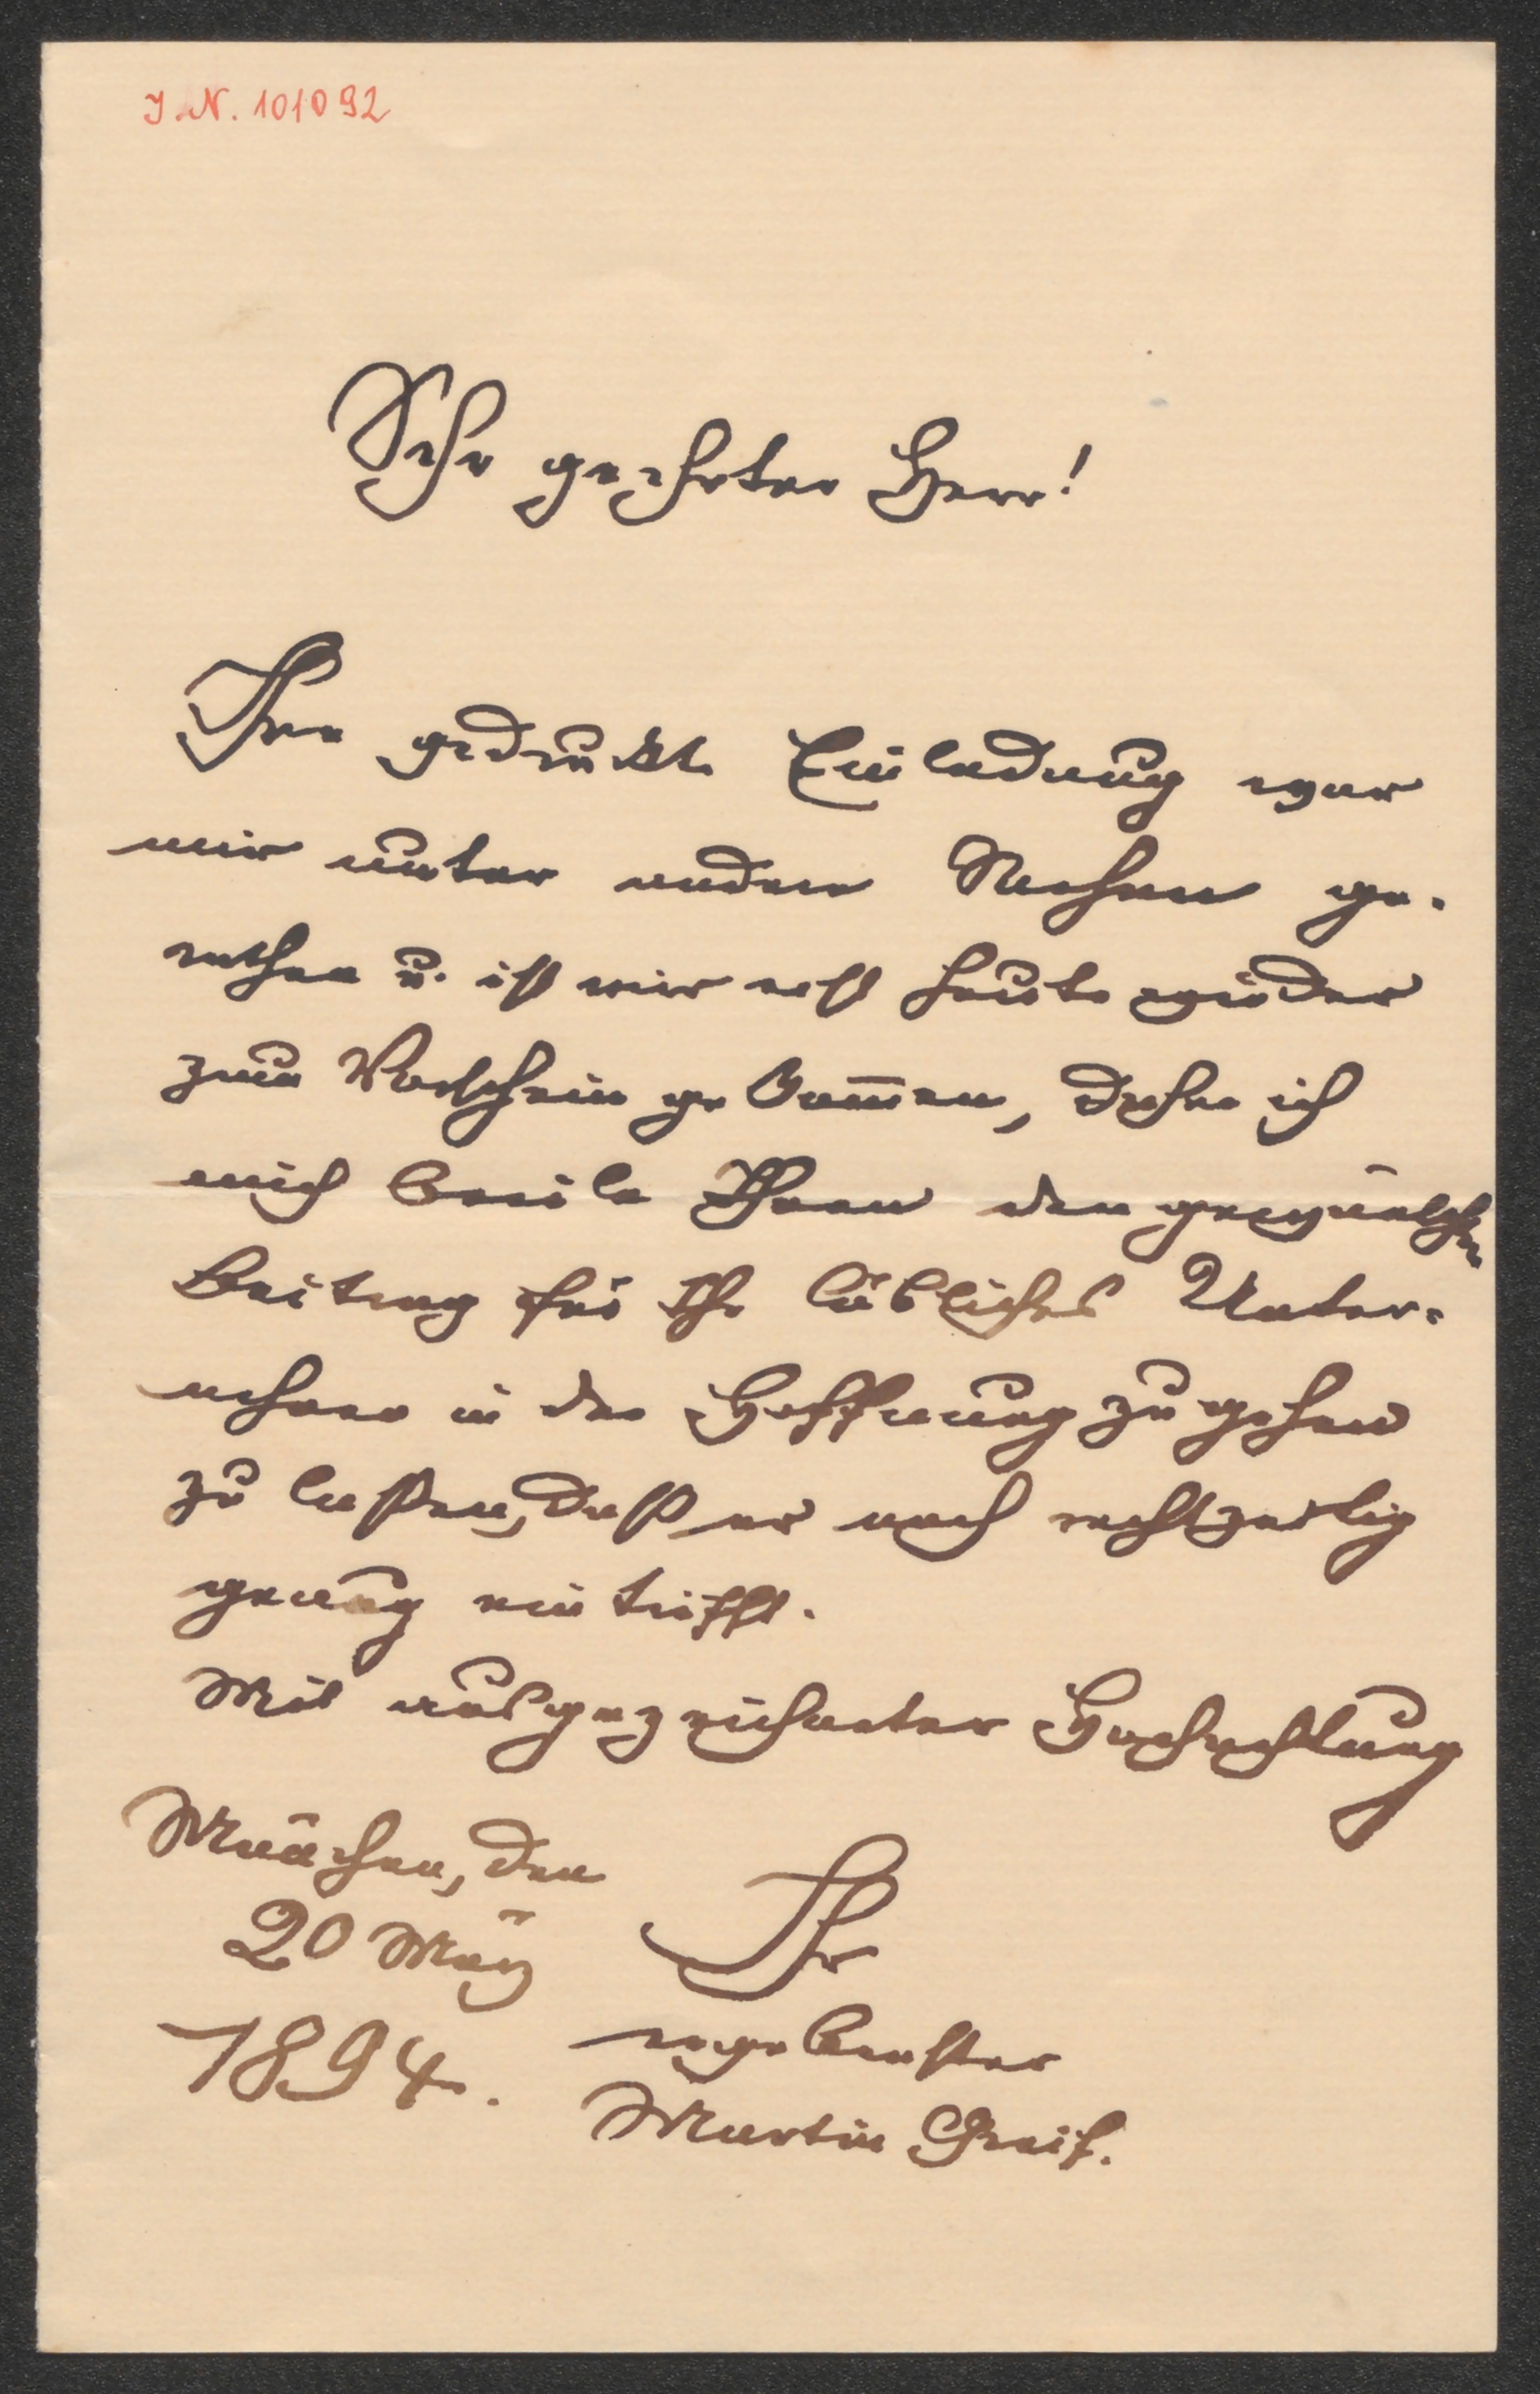 J.N. 101092
Sehr geehrter Herr!
Ihre gedruckte Einladung war
mir unter andere Sachen ge-
rathen u. ist mir erst heute wieder
zum Vorschein gekom̅en, daher ich
mich beeile Ihnen den gewünschten
Beitrag für Ihr löbliches Unter-
nehmen in der Hoffnung zugehen
zu lassen, daß er noch rechtzeitig
genug eintrifft.
Mit ausgezeichneter Hochachtung
München, den
20 März
1894.
Ihr
ergebenster
Martin Greif.